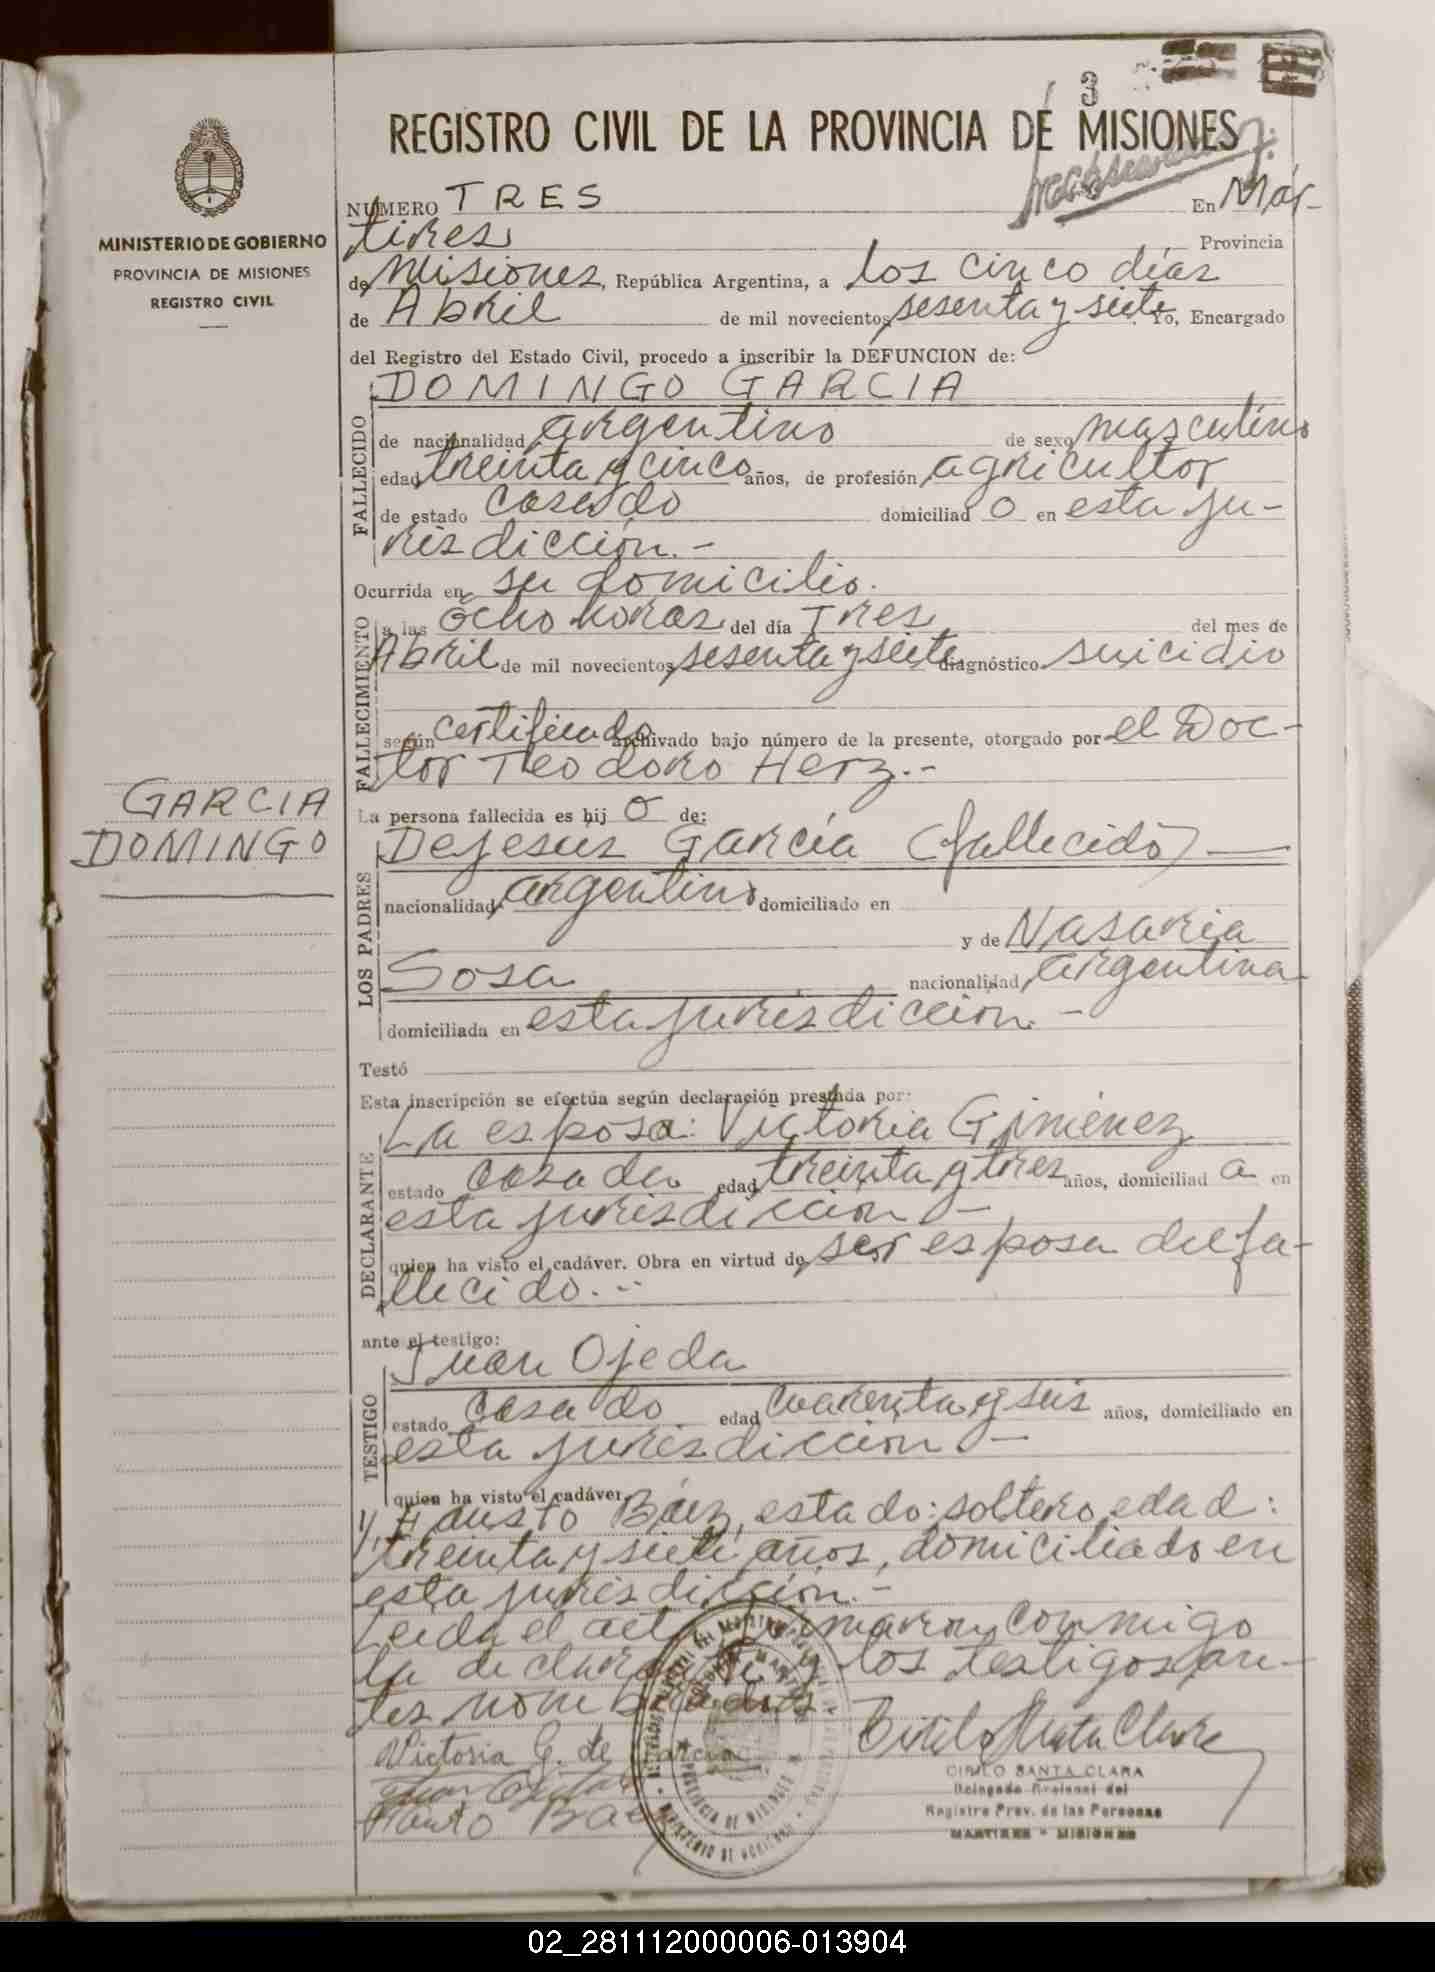 3
REGISTRO CIVIL DE LA PROVINCIA DE MISIONES
MINISTERIO DE GOBIERNO
PROVINCIA DE MISIONES
REGISTRO CIVIL
NUMERO TRES En Már-
tires Provincia
de Misiones, República Argentina, a los cinco días
de Abril de mil novecientos sesenta y siete. Yo, Encargado
del Registro del Estado Civil, procedo a inscribir la DEFUNCION de:
FALLECIDO
DOMINGO GARCIA
de nacionalidad argentino de sexo masculino
edad treinta y cinco años, de profesión agricultor
de estado casado domiciliad o en esta ju-
risdicción.-
FALLECIMIENTO
Ocurrida en su domicilio.
a las ocho horas del día Tres del mes de
Abril de mil novecientos sesenta y siete diagnóstico suicidio
según certificado archivado bajo número de la presente, otorgado por el Doc-
tor Teodoro Herz.-
GARCIA
DOMINGO
La persona fallecida es hij o de:
LOS PADRES
Dejesús García (fallecido)
nacionalidad argentino domiciliado en
y de Nasaria
Sosa nacionalidad argentina
domiciliada en esta jurisdicción.-
Testó
Esta inscripción se efectúa según declaración prestada por:
DECLARANTE
La esposa: Victoria Giménez
estado casada edad treinta y tres años, domiciliad a en
esta jurisdicción -
quien ha visto el cadáver. Obra en virtud de ser esposa del fa-
llecido.-
ante el testigo:
TESTIGO
Juan Ojeda
estado casado edad cuarenta y seis años, domiciliado en
esta jurisdicción -
quien ha visto el cadáver.
y, Fausto Báez, estado: soltero, edad:
treinta y siete años, domiciliado en
esta jurisdicción.-
Leida el acta firmaron conmigo
la declarante y los testigos an-
tes nombrados.
Victoria G. de Garcia
Juan Ojeda
Fausto Baez
Cirilo Santa Clara
CIRILO SANTA CLARA
Delegado Regional del
Registro Prov. de las Personas
MARTIRES - MISIONES
PROVINCIA DE MISIONES
MINISTERIO DE GOBIERNO
02_281112000006-013904